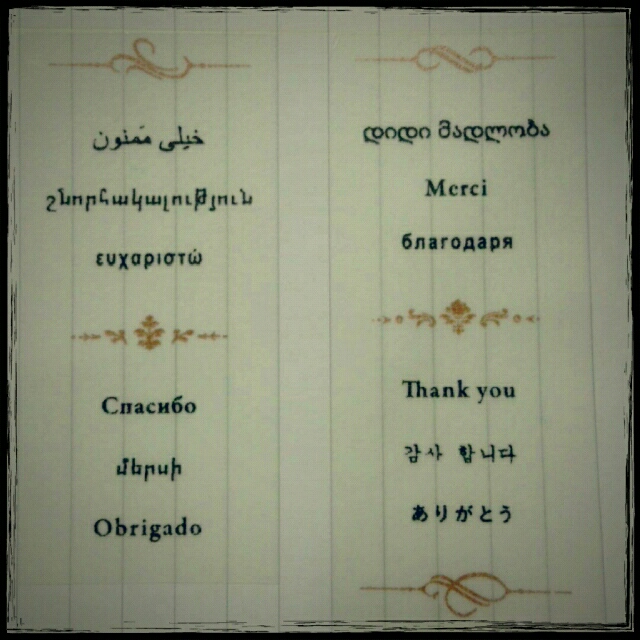 خیلی ممنون
շնորհակալություն
ευχαριστώ
Спасибо
մերսի
Obrigado
დიდი მადლობა
Merci
благодаря
Thank you
감사 합니다
ありがとう